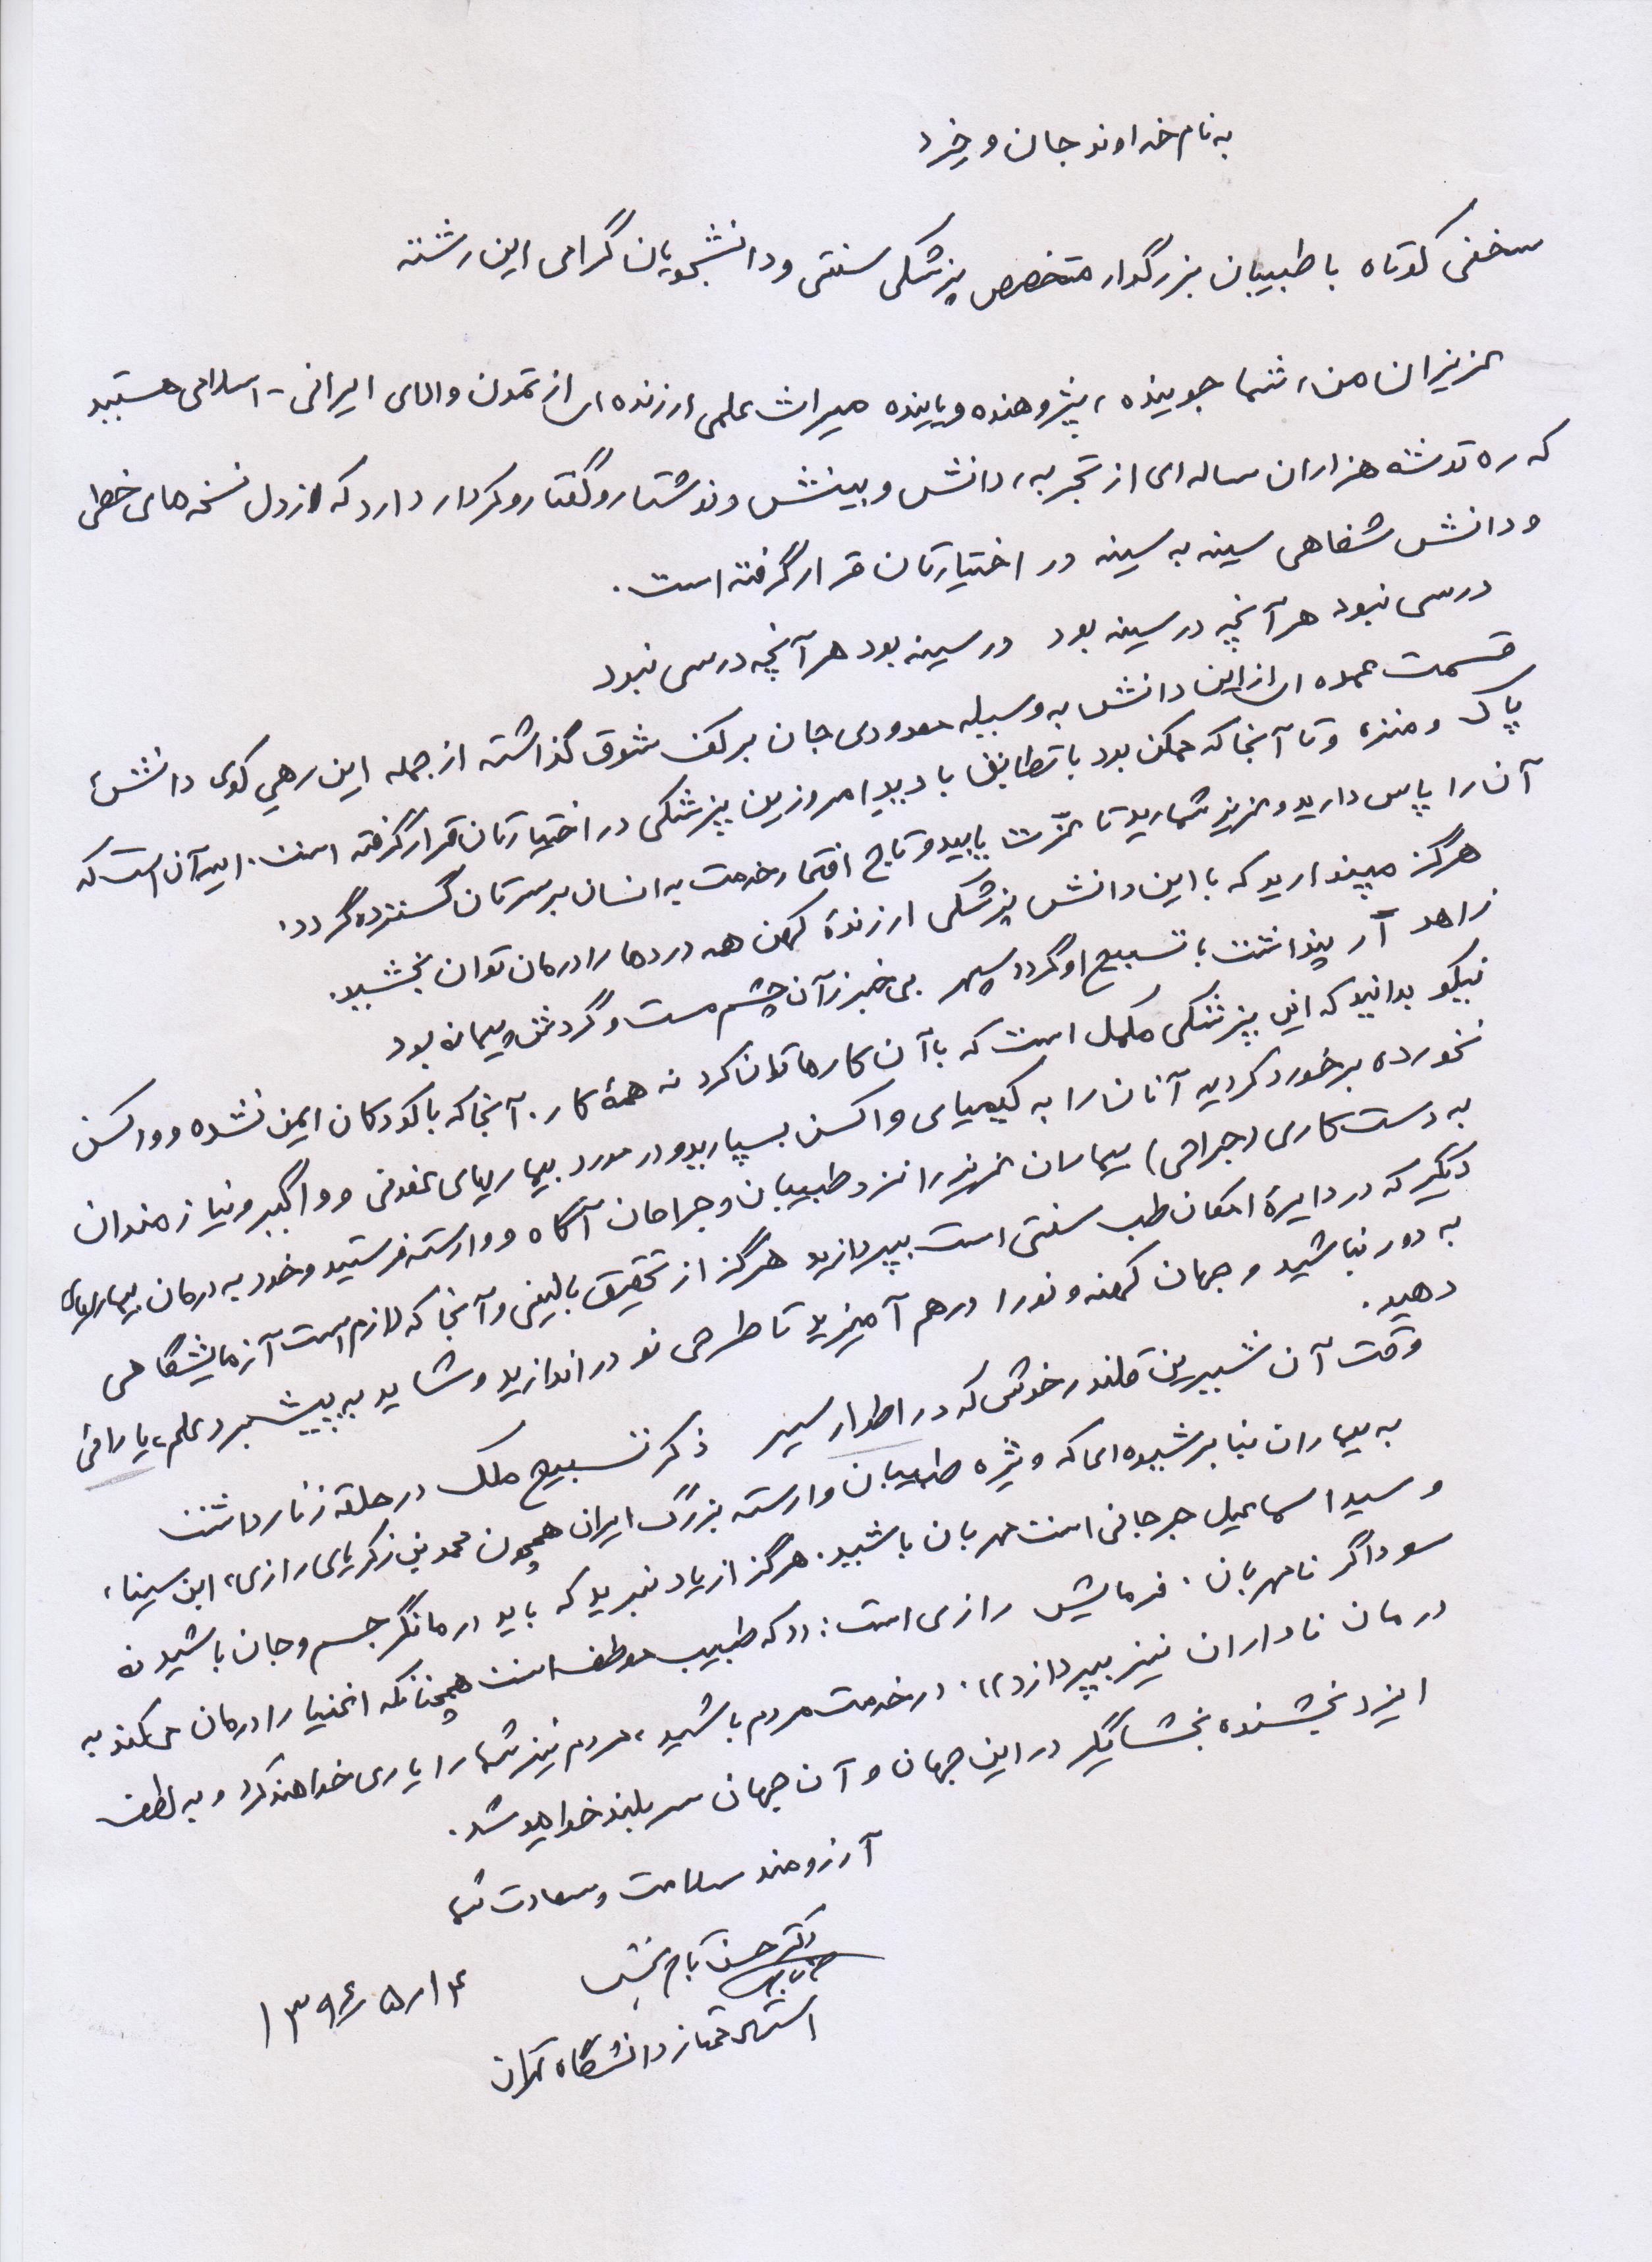 به نام خداوند جان و خرد
سخنی کوتاه با طبیبان بزرگوار متخصص پزشکی سنتی و دانشجویان گرامی این رشته
عزیزان من، شما جوینده، پژوهنده و یابنده میراث علمی ارزنده ای از تمدن والای ایرانی - اسلامی هستید
که ره توشه هزاران ساله ای از تجربه، دانش و بینش و نوشتار و گفتار و کردار دارد که از دل نسخه های خطی
و دانش شفاهی سینه به سینه در اختیارتان قرار گرفته است.
درسی نبود هر آنچه در سینه بود در سینه بود هر آنچه درسی نبود
قسمت عمده ای از این دانش به وسیله معدودی جان بر کف شوق گذاشته از جمله این رهی کوی دانش
پاک و منزه و تا آنجا که ممکن بود با تطابق با دید امروزین پزشکی در اختیارتان قرار گرفته است. امید آن است که
آن را پاس دارید و عزیز شمارید تا عزّت یابید و تاج افتخار خدمت به انسان بر سرتان گسترده گردد.
هرگز مپندارید که با این دانش پزشکی ارزندۀ کهن همه دردها را درمان توان بخشید.
زاهد ار پنداشت با تسبیح او گردد سپهر بی خبر زآن چشم مست و گردش پیمانه بود
نیکو بدانید که این پزشکی مکمل است که با آن کارها توان کرد نه همۀ کار. آنجا که با کودکان ایمن نشده و واکسن
نخورده برخورد کردید آنان را به کیمیای واکسن بسپارید و در مورد بیماریهای عفونی و واگیر و نیازمندان
به دست کاری (جراحی) بیماران عزیز را نزد طبیبان و جراحان آگاه و وارسته فرستید و خود به درمان بیماریهای
دیگر که در دایرۀ امکان طب سنتی است بپردازید هرگز از تحقیق بالینی و آنجا که لازم است آزمایشگاهی
به دور نباشید و جهان کهنه و نو را در هم آمیزید تا طرحی نو دراندازید و شاید به پیشبرد علم، یارائی
دهید.
وقت آن شیرین قلندر خوش که در اطوار سیر ذکر تسبیح ملک در حلقه زنار داشت
به بیماران بنا بر شیوه ای که ویژه طبیبان وارسته بزرگ ایران همچون محمد بن زکریای رازی، ابن سینا،
و سید اسماعیل جرجانی است مهربان باشید. هرگز از یاد نبرید که باید درمانگر جسم و جان باشید نه
سوداگر نامهربان. فرمایش رازی است: ((که طبیب موظف است همچنانکه اغنیا را درمان می کند به
درمان ناداران نیز بپردازد)). در خدمت مردم باشید، مردم نیز شما را یاری خواهند کرد و به لطف
ایزد بخشنده بخشایگر در این جهان و آن جهان سربلند خواهید شد.
آرزومند سلامت و سعادت شما
دکتر حسن تاج بخش
استاد ممتاز دانشگاه تهران
۱۳۹۶/۵/۱۴